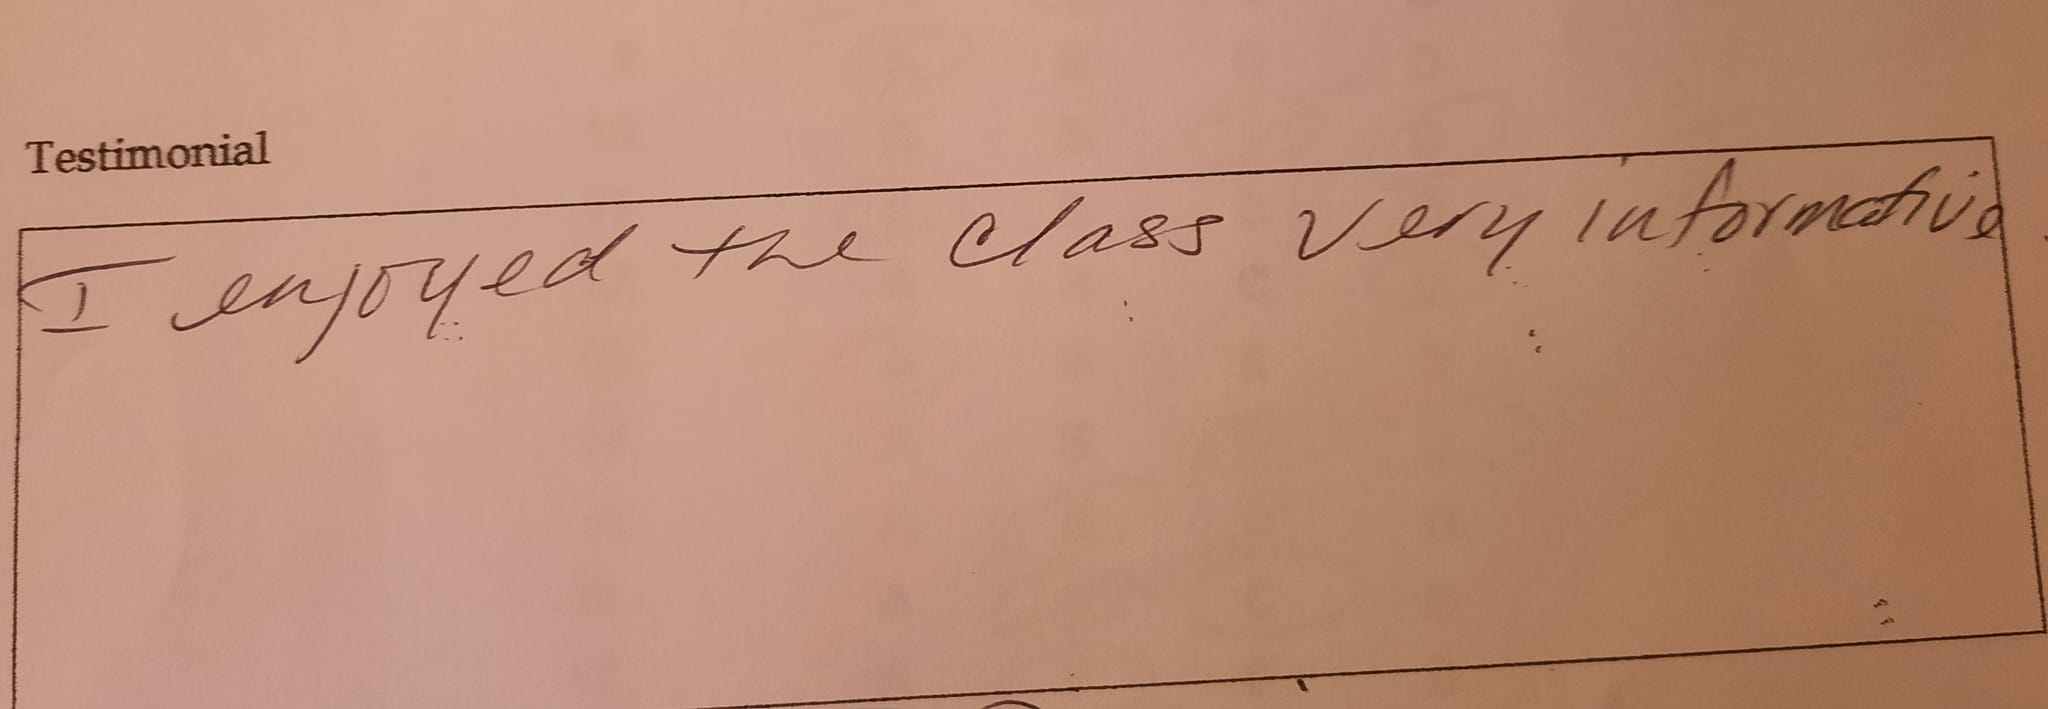 Testimonial
I enjoyed the class very informative